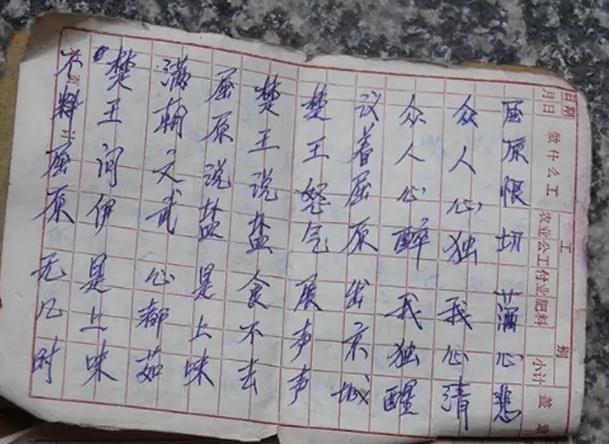 不料屈原无几时
楚王问伊是上味
满朝文武心都茹
屈原说盐是上味
楚王说盐食不去
楚王怒气展声声
议着屈原出京城
众人心醉我独醒
众人心独我心清
屈原恨切满心悲
日期
月日
做什么工
工别
农业公工付业肥料
小计